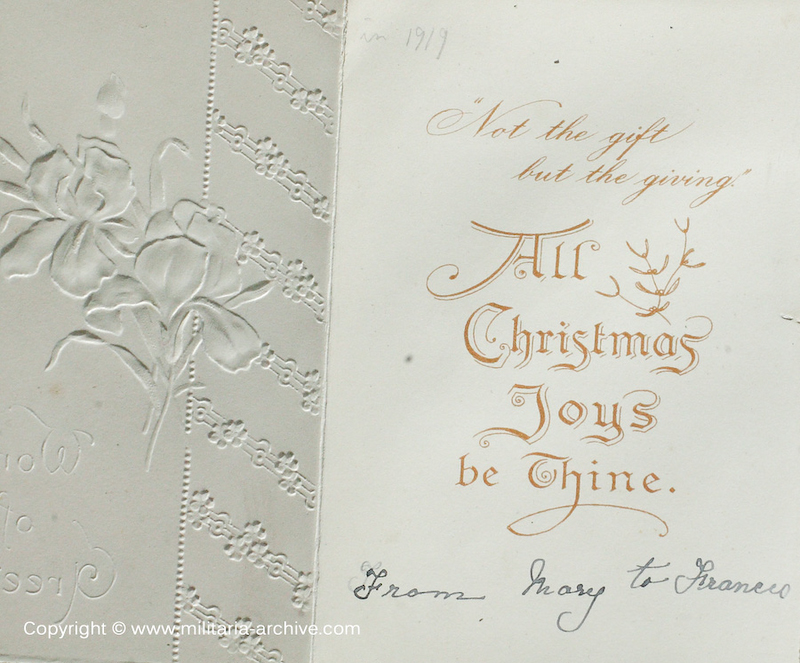 in 1919
"Not the gift
but the giving."
All
Christmas
Joys
be Thine.
From Mary to Francis
Wor
of
Gree
Copyright © www.militaria-archive.com